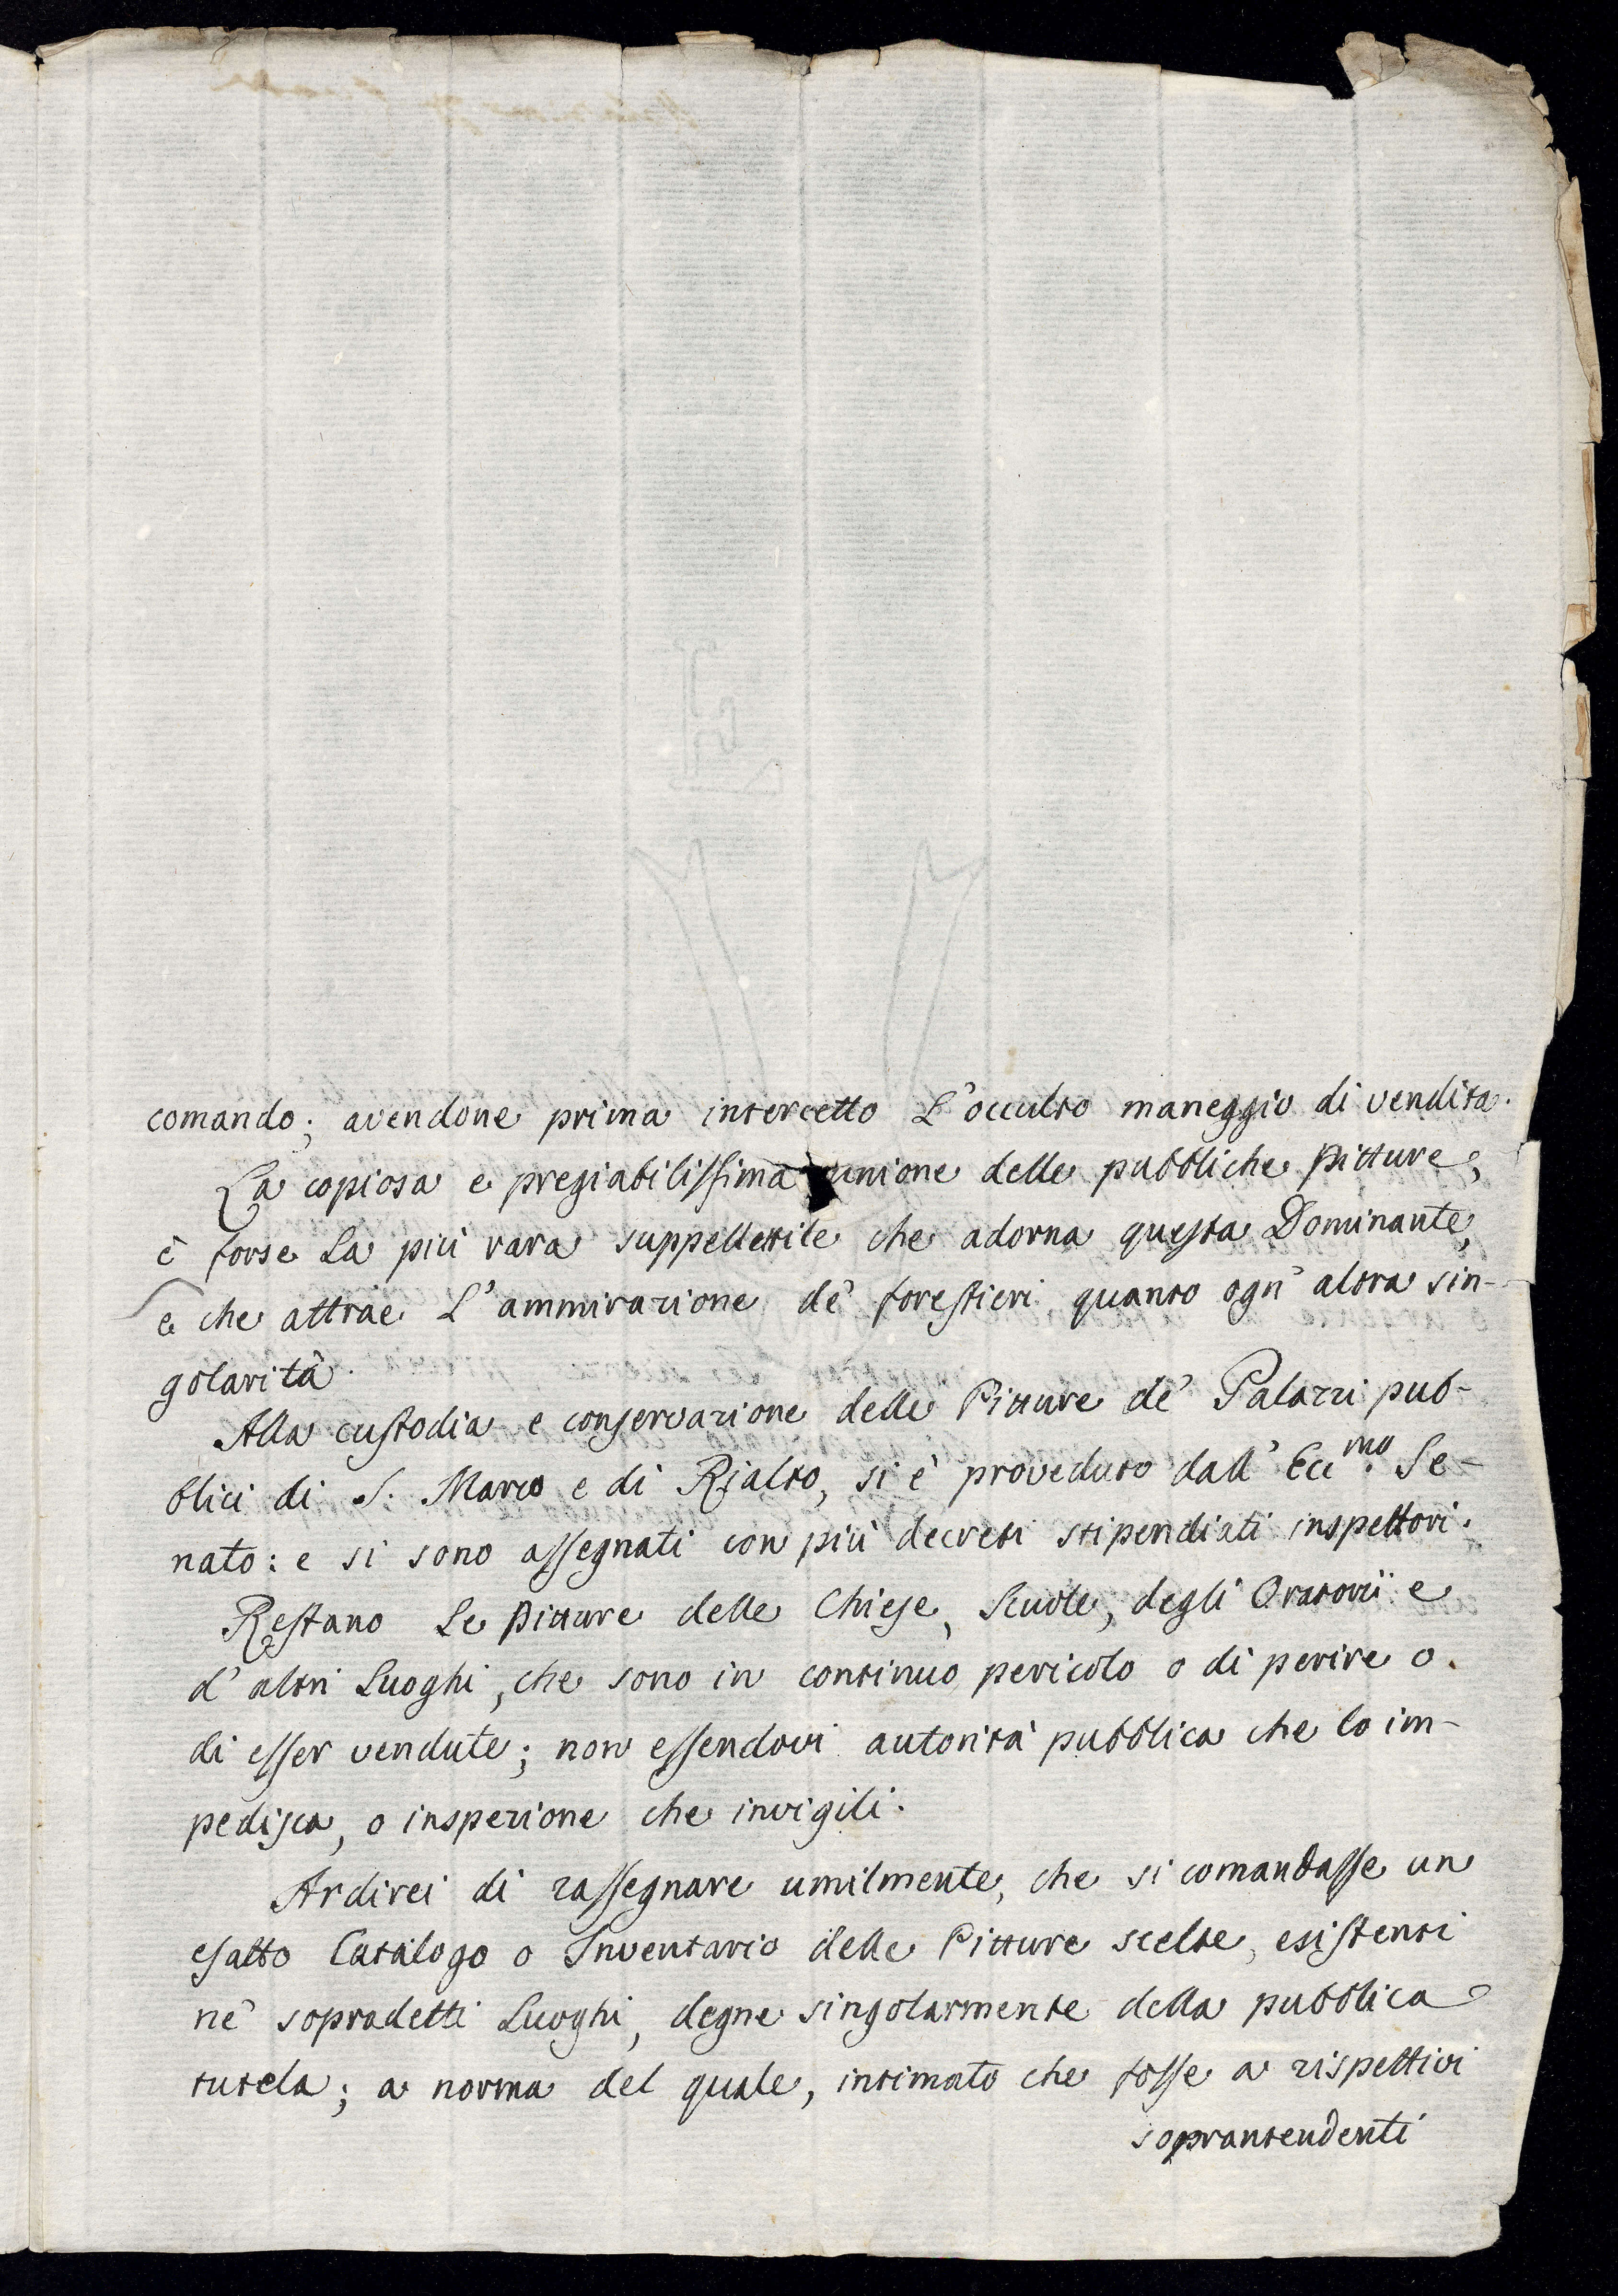 comando; avendone prima intercetto L'occulto maneggio di vendita.
La copiosa e pregiabilissima unione delle pubbliche pitture,
è forse La più rara suppellettile che adorna questa Dominante,
e che attrae L'ammirazione de' forestieri quanto ogn' altra sin-
golarità.
Alla custodia e conservazione delle Pitture de' Palazzi pub-
blici di S. Marco e di Rialto, si è proveduto dall' Ecc.mo Se-
nato: e si sono assegnati con più decreti stipendiati inspettori.
Restano Le pitture delle Chiese, Scuole, degli Oratorii e
d' altri Luoghi, che sono in continuo pericolo o di perire o
di esser vendute; non essendovi autorità pubblica che lo im-
pedisca, o inspezione che invigili.
Ardirei di rassegnare umilmente, che si comandasse un
esatto Catalogo o Inventario delle Pitture scelte, esistenti
ne' sopradetti Luoghi, degne singolarmente della pubblica
tutela; a norma del quale, intimato che fosse a rispettivi
soprantendenti